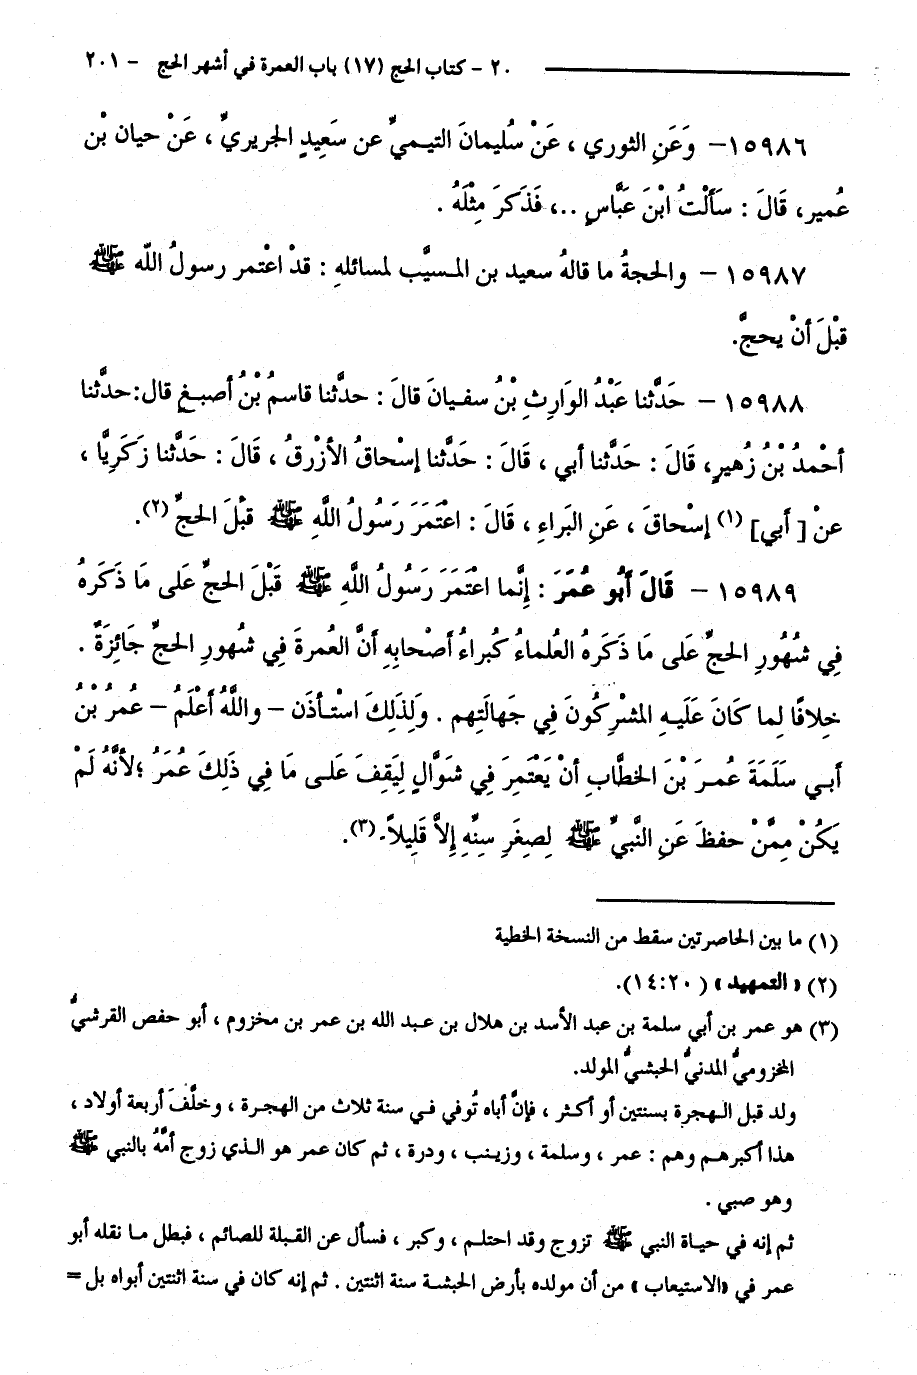 ٢٠ - كتاب الحج (١٧) باب العمرة في أشهر الحج - ٢٠١
١٥٩٨٦- وَعَنِ الثوري ، عَنْ سُليمانَ التيـميِّ عن سَعِيدٍ الجريريِّ ، عَنْ حيان بْن
عُمير، قَالَ : سَأَلْتُ ابْنَ عَبَّاسٍ ..، فَذَكَرَ مِثْلَهُ .
١٥٩٨٧ - والحجةُ ما قالهُ سعيد بن المـسيَّب لمسائلهِ : قدْ اعْتمر رسولُ اللّه ﷺ
قبْلَ أنْ يحجَّ.
١٥٩٨٨ - حَدَّثنا عَبْدُ الوَارِثِ بْنُ سفـيانَ قالَ : حدَّثنا قاسمُ بْنُ أصبـغٍ قال: حدَّثنا
أحْمدُ بْنُ زُهيرٍ، قَالَ : حَدَّثنا أبي ، قَالَ : حَدَّثنا إسْحاقُ الأزْرقُ ، قَالَ : حَدَّثنا زكَرِيَّا ،
عنْ [ أبي] (١) إسْحاقَ ، عَنِ البَراءِ ، قَالَ : اعْتَمَرَ رَسُولُ اللَّهِ ﷺ قبْلَ الحجِّ (٢).
١٥٩٨٩ - قَالَ أَبُو عُمَرَ : إِنَّما اعْتَمَرَ رَسُولُ اللَّهِ ﷺ قَبْلَ الحجِّ عَلى مَا ذَكَرهُ
فِي شُهُورِ الحجِّ عَلى مَا ذَكَرَهُ العُلماءُ كُبراءُ أصْحابِهِ أنَّ العُمرةَ فِي شُهورِ الحجِّ جَائِزَةٌ .
خِلافًا لِما كَانَ عَلَيهِ المشْرِكُونَ فِي جَهالَتِهم . ولِذلِكَ اسْتـأذَن – واللَّهُ أعْلَمُ – عُمرُ بْنُ
أبـي سَلَمَةَ عُمـرَ بْنَ الخطَّابِ أنْ يَعْتَمِرَ فِي شَوَّالٍ لِيَقِفَ عَلـى مَا فِي ذَلِكَ عُمَرَ ؛لأنَّهُ لَمْ
يَكُنْ مِمَّنْ حفظَ عَنِ النَّبيِّ ﷺ لِصِغَرِ سِنِّهِ إِلاَّ قَلِيلاً.(٣).
(١) ما بين الحاصرتين سقط من النسخة الخطية
(٢) « التمهيد » ( ١٤:٢٠).
(٣) هو عمر بن أبي سلمة بن عبد الأسد بن هلال بن عـبد الله بن عمر بن مخزوم ، أبو حفص القرشيُّ
المخزوميُّ المدنيُّ الحبشيُّ المولد.
ولد قبل الـهجرة بسنتين أو أكـثر ، فإنَّ أباه تُوفي فـي سنة ثلاث من الهجـرة ، وخلَّفَ أربعة أولاد ،
هذا أكبرهـم وهم : عمر ، وسلمة ، وزيـنب ، ودرة ، ثم كان عمر هو الـذي زوج أمَّهُ بالنبي ﷺ
وهو صبي .
ثم إنه في حيـاة النبي ﷺ تزوج وقد احتلـم ، وكبر ، فسأل عن القـبلة للصائم ، فبطل مـا نقله أبو
عمر في «الاستيعاب » من أن مولده بأرض الحبشـة سنة اثنتين . ثم إنه كان في سنة اثنتين أبواه بل =